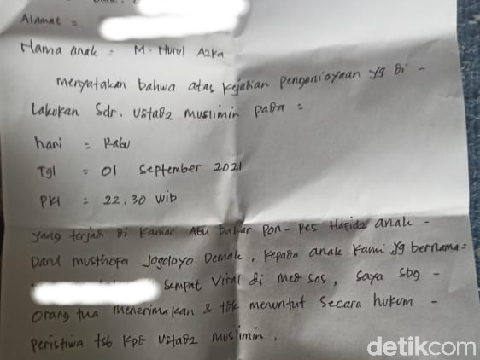 Alamat =
Nama anak = M. Nurul Azka
menyatakan bahwa atas kejadian penganiayaan yg di -
Lakukan Sdr. Ustadz muslimin pada =
hari = Rabu
Tgl = 01 September 2021
Pkl = 22.30 wib
yang terjadi di kamar Abu Bakar Pon-Pes Hafidz anak -
Darul musthofa Jogoloyo Demak, kepada anak kami yg bernama =
sempat viral di medsos, saya sbg -
orang tua menerimakan & tdk menuntut secara hukum -
peristiwa tsb kpd ustadz muslimin.
detikcom